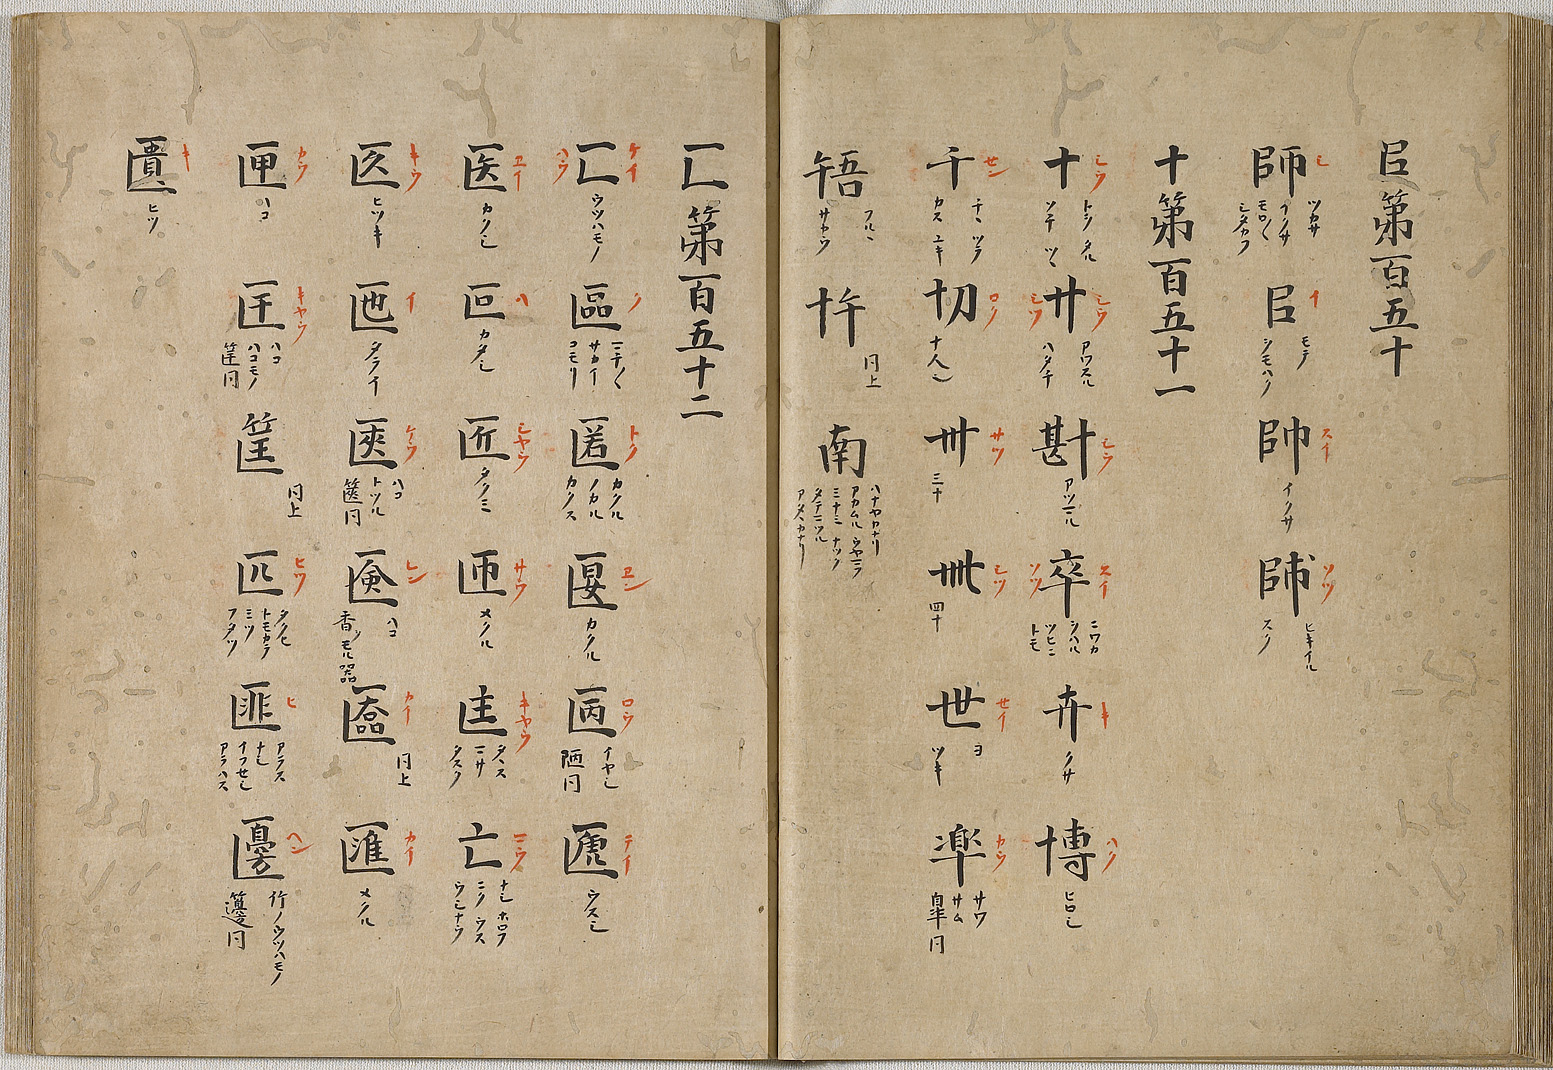 㠯第百五十
師 シ ツカサ イクサ モロ〱 シタカフ
㠯 イ モテ シモハク
帥 スイ イクサ
ソツ ヒキイル スク
十第百五十一
十 シウ トシ タル ソテ ツヽ
廿 シウ シウ アワスル ハタチ
斟 シウ
卒 スイ ソツ ニワカ シハル ツヒニ トモ
卉 キ クサ
博 ハク ヒロシ
千 セン チヽ ツラ カス ユキ
切 ロク 十人ヽ
卅 サウ 三十
卌 シウ 四十
世 セイ ヨ ツキ
サワ サム 皐同
フルヽ サカウ
忤 同上
南 ハナヤカナリ アカムル ウヤマフ ミナミ ナツク アタヽカナリ
匚第百五十二
匚 ケイ ハウ ウツハモノ
區 ク マチ〱 サカイ コモリ
匿 トク カクル ノカル カクス
匽 エン カクル
㔷 ロウ イヤシ 陋同
𠥜 テイ ウスシ
医 エイ カクシ
叵 ハ カタシ
匠 シヤウ タクミ
匝 サウ メクル
匡 キヤウ タヽス マサ タスク
亡 マウ ナシ ホロフ ニク ウス ウシナウ
匛 キウ ヒツキ
匜 イ タライ
匧 ケウ ハコ トツル 篋同
匳 レン ハコ 香ノモル器
匲 カイ 同上
匯 カイ メクル
匣 カウ ハコ
匡 キヤウ ハコ ハコモノ 筐同
筐 同上
匹 ヒツ タクヒ トモカラ ミツ フタツ
匪 ヒ アラス ナシ イフセシ アラハス
𠥝 ヘン 竹ノウツハモノ 籩同
匱 キ ヒツ